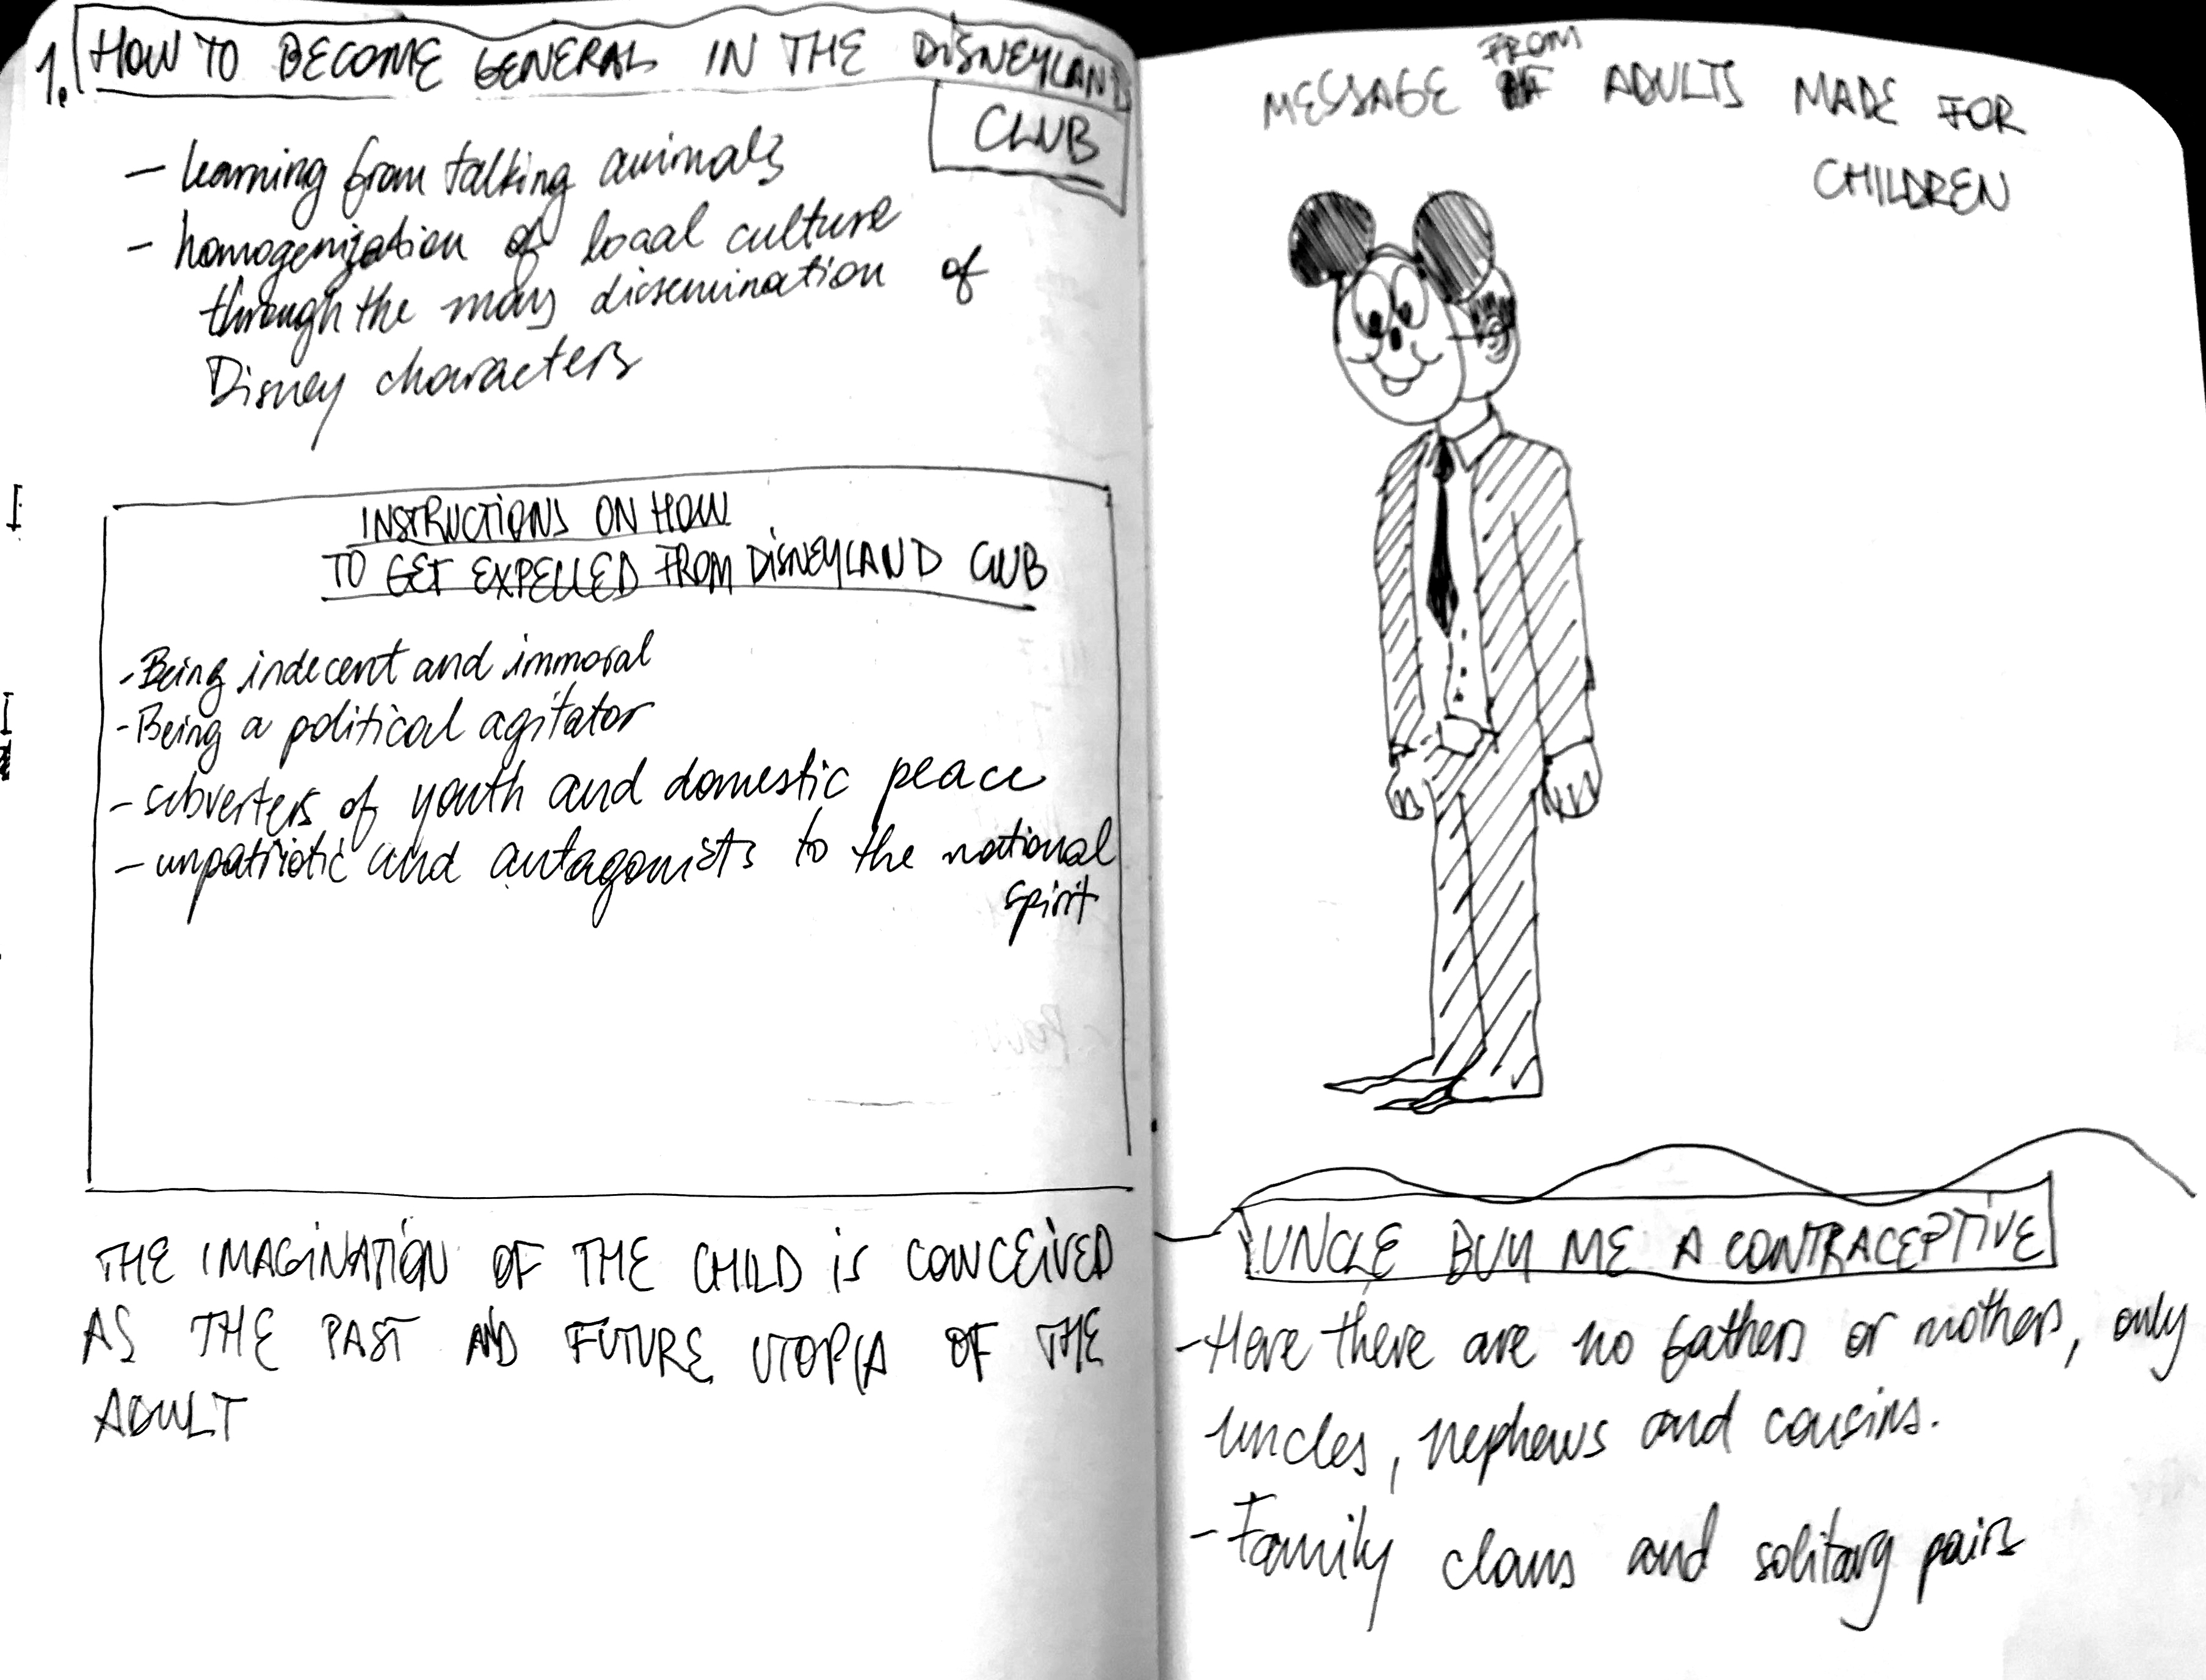 1. HOW TO BECOME GENERAL IN THE DISNEYLAND
CLUB
- learning from talking animals
- homogenization of local culture
through the mass dissemination of
Disney characters
INSTRUCTIONS ON HOW
TO GET EXPELLED FROM DISNEYLAND CLUB
- Being indecent and immoral
- Being a political agitator
- subverters of youth and domestic peace
- unpatriotic and antagonists to the national
spirit
THE IMAGINATION OF THE CHILD IS CONCEIVED
AS THE PAST AND FUTURE UTOPIA OF THE
ADULT
MESSAGE FROM ADULTS MADE FOR
CHILDREN
UNCLE BUY ME A CONTRACEPTIVE
- Here there are no fathers or mothers, only
uncles, nephews and cousins.
- Family clans and solitary pairs